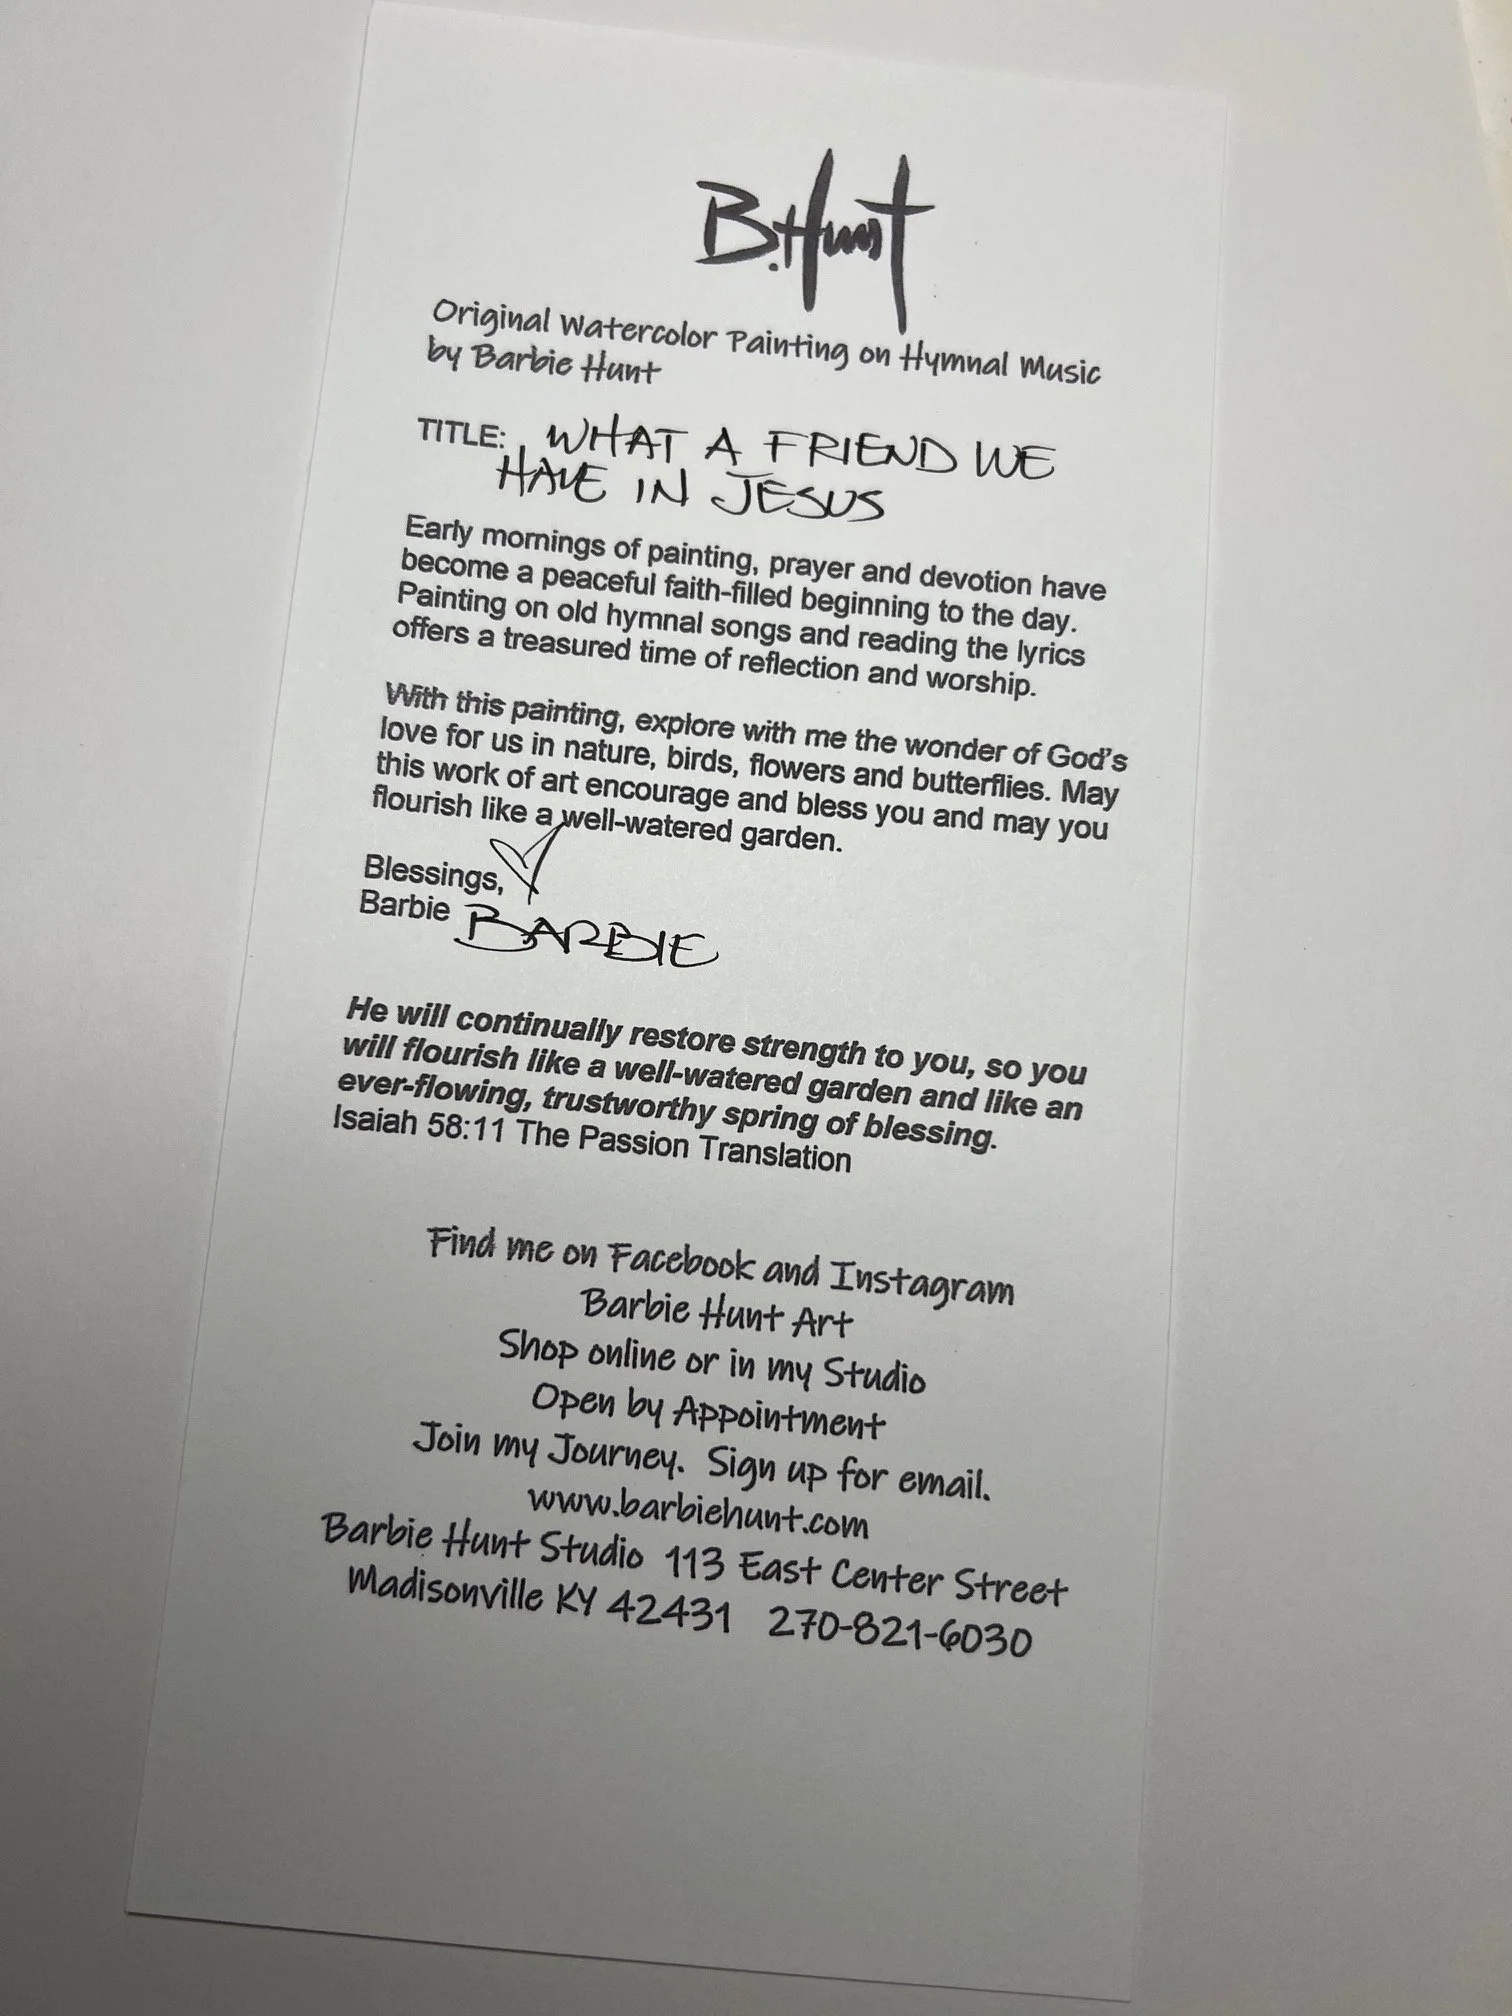 B. Hunt
Original Watercolor Painting on Hymnal Music
by Barbie Hunt
TITLE: WHAT A FRIEND WE
HAVE IN JESUS
Early mornings of painting, prayer and devotion have
become a peaceful faith-filled beginning to the day.
Painting on old hymnal songs and reading the lyrics
offers a treasured time of reflection and worship.
With this painting, explore with me the wonder of God's
love for us in nature, birds, flowers and butterflies. May
this work of art encourage and bless you and may you
flourish like a well-watered garden.
Blessings,
Barbie BARBIE
He will continually restore strength to you, so you
will flourish like a well-watered garden and like an
ever-flowing, trustworthy spring of blessing.
Isaiah 58:11 The Passion Translation
Find me on Facebook and Instagram
Barbie Hunt Art
Shop online or in my Studio
Open by Appointment
Join my Journey. Sign up for email.
www.barbiehunt.com
Barbie Hunt Studio 113 East Center Street
Madisonville KY 42431 270-821-6030